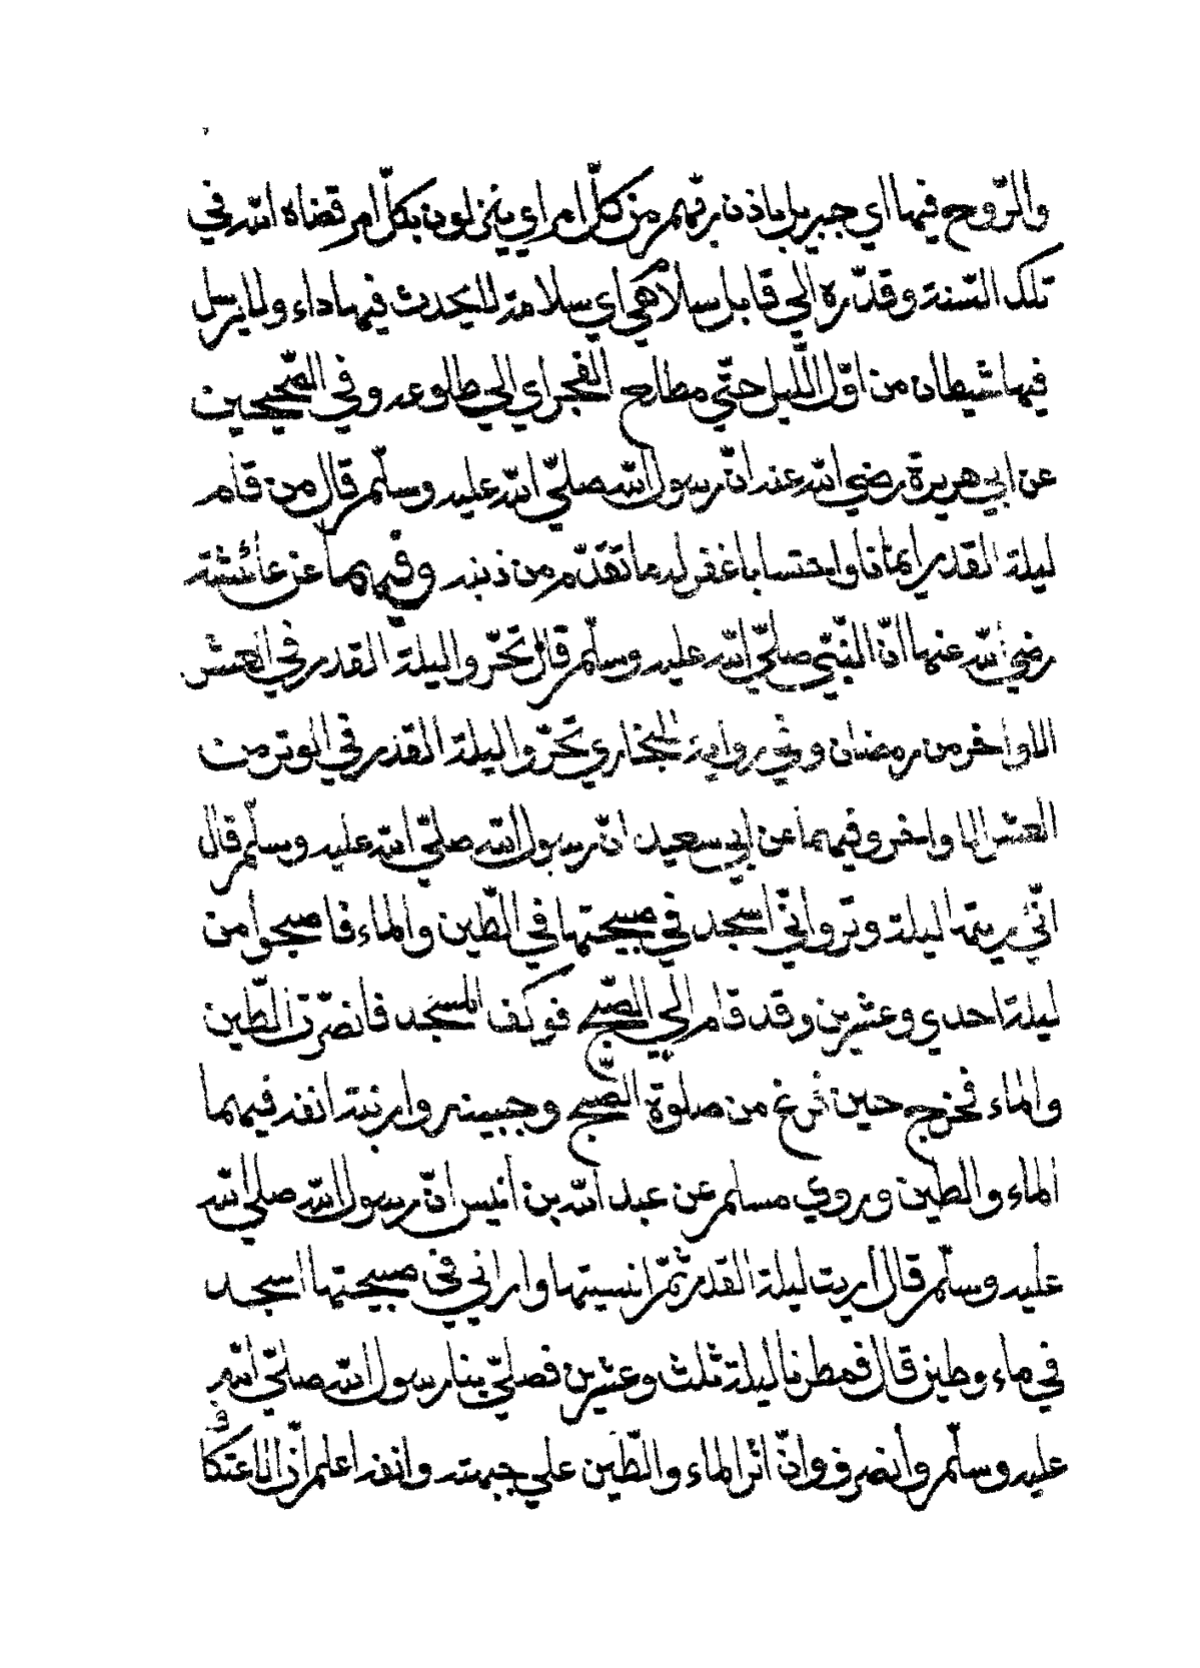 والرّوح فيها اي جبريل باذن ربّهم من كلّ امر اي ينزلون بكلّ امر قضاه الله في
تلك السّنة وقدّره الي قابل سلام هي اي سلامة لا يحدث فيها داء ولا يرسل
فيها شيطان من اوّل اللّيل حتّي مطلع الفجر اي الي طلوعه وفي الصّحيحين
عن ابي هريرة رضي الله عنه انّ رسول الله صلّي الله عليه وسلّم قال من قام
ليلة القدر ايمانا واحتسابا غفر له ما تقدّم من ذنبه وفيهما عن عائشة
رضي الله عنها انّ النّبيّ صلّي الله عليه وسلّم قال تحرّوا ليلة القدر في العشر
الاواخر من رمضان وفي رواية البخاري تحرّوا ليلة القدر في الوتر من
العشر الاواخر وفيهما عن ابي سعيد انّ رسول الله صلّي الله عليه وسلّم قال
انّي اريتها ليلة وتر وانّي اسجد في صبيحتها في الطّين والماء فاصبحوا من
ليلة احدي وعشرين وقد قام الي الصّبح فوكف المسجد فابصرت الطّين
والماء فخرج حين فرغ من صلوة الصّبح وجبينه وارنبة انفه فيهما
الماء والطين وروي مسلم عن عبد الله بن انيس انّ رسول الله صلي الله
عليه وسلّم قال اريت ليلة القدر ثمّ انسيتها واراني في صبيحتها اسجد
في ماء وطين قال فمطرنا ليلة ثلث وعشرين فصلّي بنا رسول الله صلّي الله
عليه وسلّم وانصرف وانّ اثر الماء والطّين علي جبهته وانفه اعلم انّ الاعتكاف